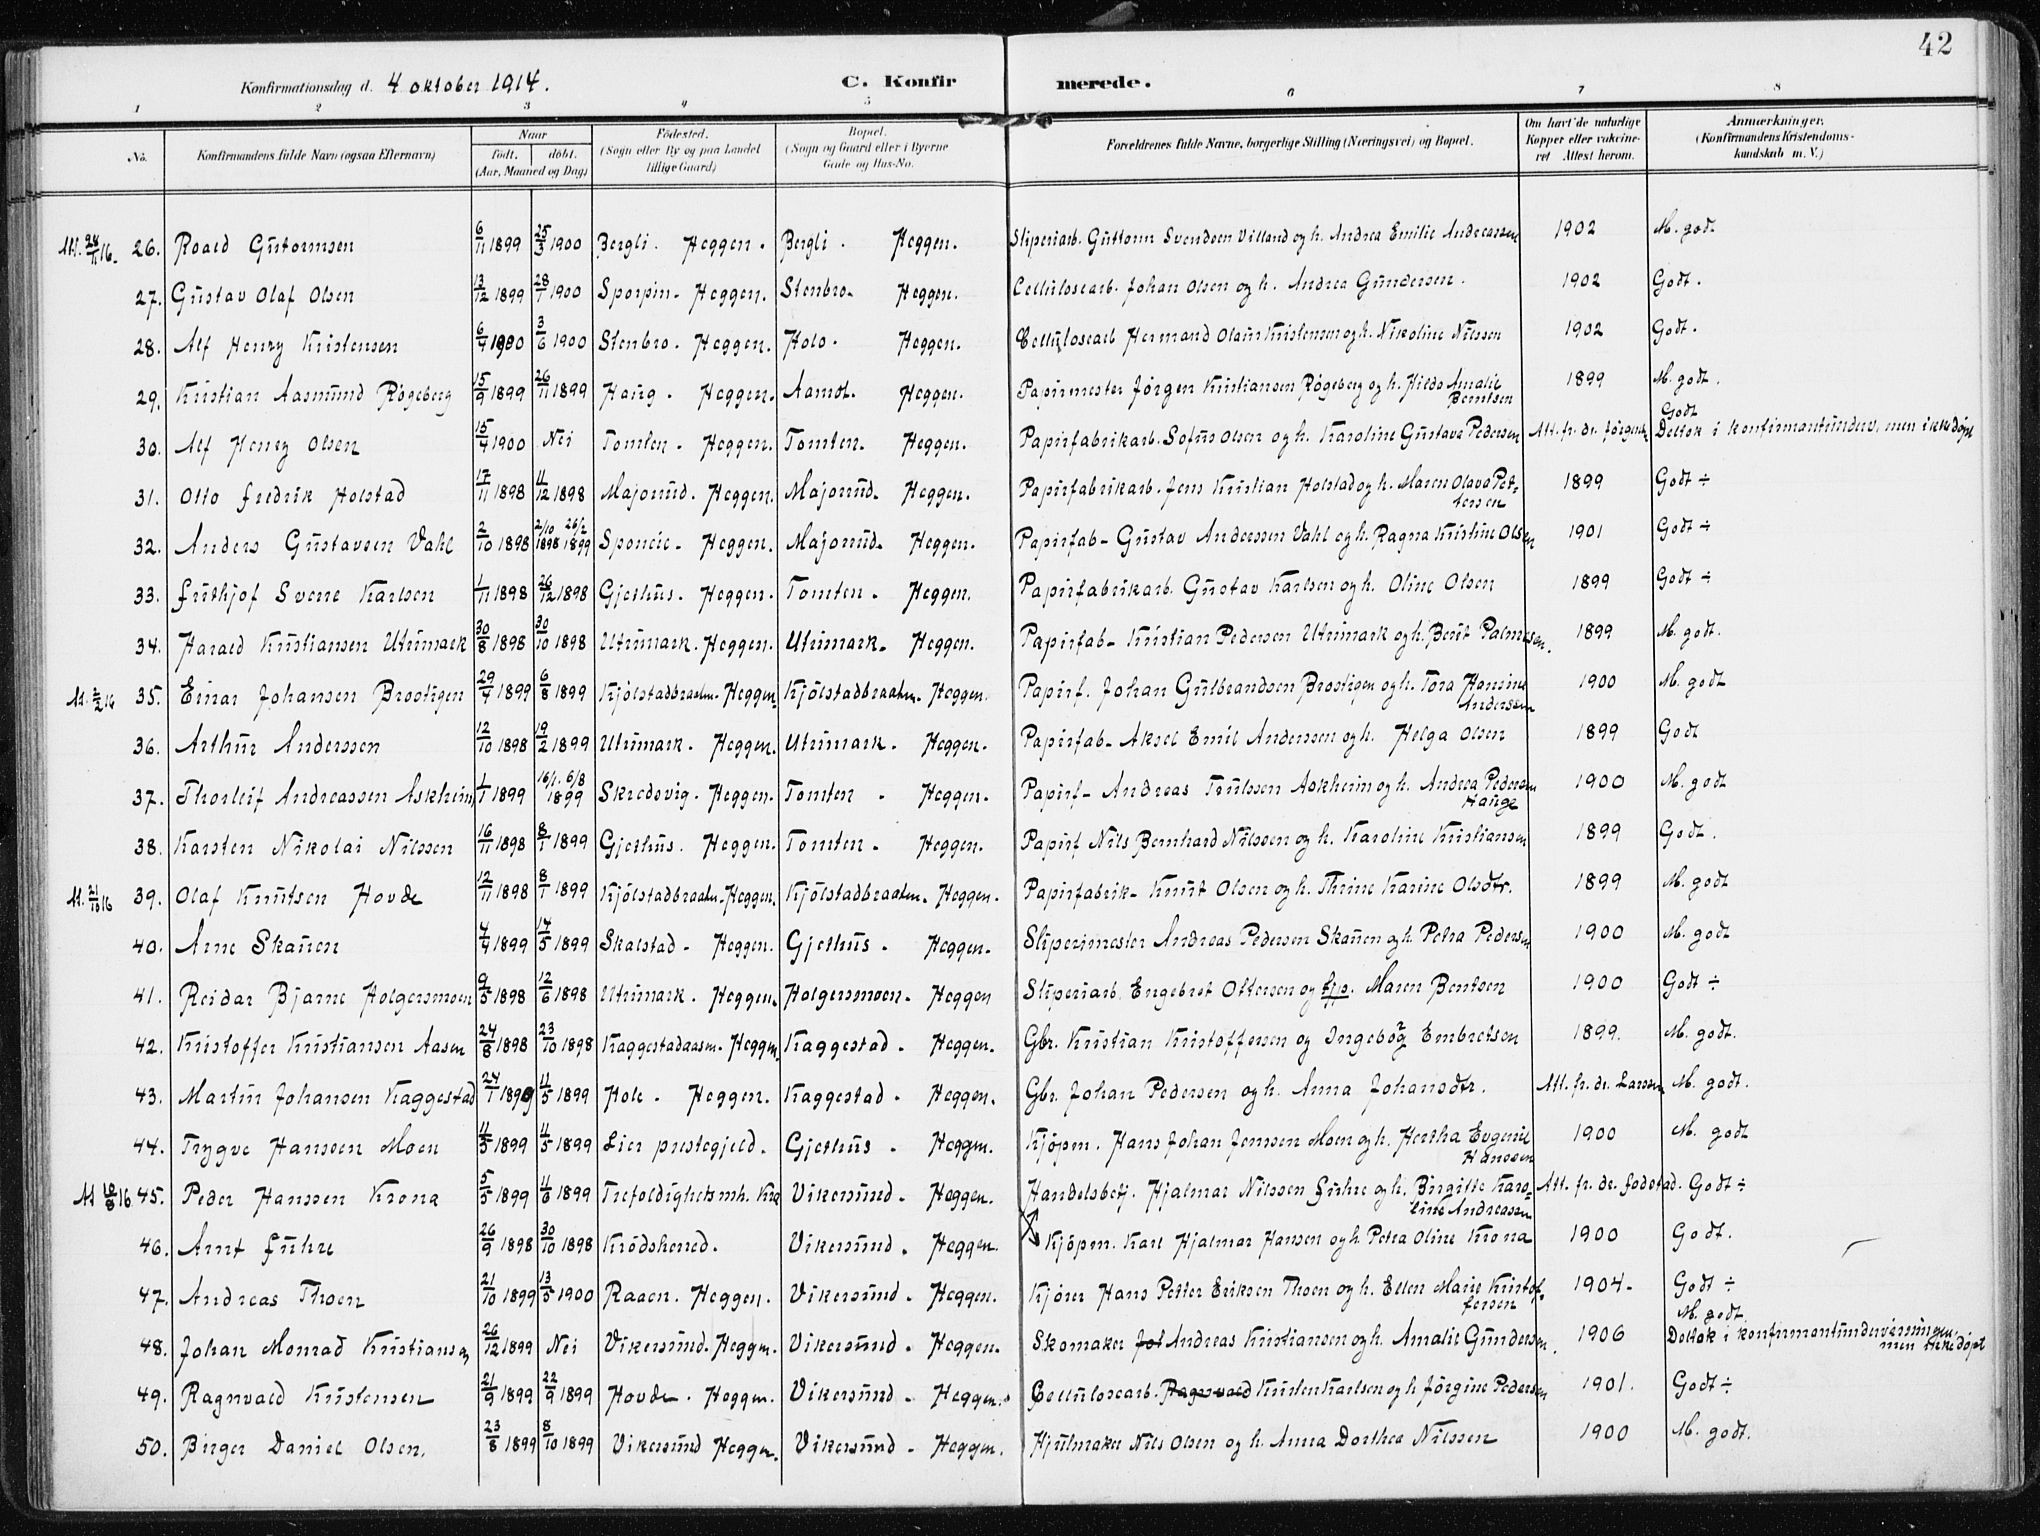 42
Konfirmationsdag d. 4 oktober 1914.
C. Konfirmerede.
1 2 3 4 5 6 7 8
No. Konfirmandens fulde Navn (ogsaa Efternavn) Naar født. døbt. (Aar, Maaned og Dag) Fødested. (Sogn eller By og paa Landet tillige Gaard) Bopæl. (Sogn og Gaard eller i Byerne Gade og Hus-No. Forældrenes fulde Navne, borgerlige Stilling (Næringsvei) og Bopæl. Om havt de naturlige Kopper eller vakcineret Attest herom. Anmærkninger. (Konfirmandens Kristendomskundskab m. V.)
Att. 24/11 16. 26. Roald Guttormsen 6/11 1899 25/3 1900 Bergli. Heggen. Bergli. Heggen. Sliperiarb. Guttorm Svendsen Villand og h. Andrea Emilie Andreassen 1902 M. godt
27. Gustav Olaf Olsen 13/12 1899 28/1 1900 Sporpin. Heggen. Stenbro. Heggen. Cellulosearb. Johan Olsen og h. Andrea Gundersen. 1902 Godt.
28. Alf Henry Kristensen 6/4 1900 3/6 1900 Stenbro. Heggen. Holo. Heggen. Cellulosearb Hermand Olaus Kristensen og h. Nikoline Nilssen 1902 Godt.
29. Kristian Aasmund Røgeberg 15/9 1899 26/11 1899 Haug. Heggen. Aamot. Heggen. Papirmester Jørgen Kristiansen Røgeberg og h. Hilda Amalie Berntsen 1899 M. godt.
30. Alf Henry Olsen 15/4 1900 Nei Tomten. Heggen. Tomten. Heggen. Papirfabrikarb. Sofus Olsen og h. Karoline Gustava Pedersen Att. fr. dr. Jørgens. Godt Deltok i konfirmantunderv, men ikke døpt
31. Otto Fredrik Holstad 17/11 1898 11/12 1898 Majorud. Heggen. Majorud. Heggen. Papirfabrikarb. Jens Kristian Holstad og h. Maren Olava Pettersen 1899 Godt ÷
32. Anders Gustavsen Vahl 2/10 1898 2/10 1898 26/2 1899 Sponeie. Heggen. Majorud. Heggen. Papirfab- Gustav Anderssen Vahl og h. Ragna Kristine Olsen 1901 Godt ÷
33. Frithjof Sverre Karlsen 1/11 1898 26/12 1898 Gjethus. Heggen. Tomten. Heggen. Papirfabrikarb. Gustav Karlsen og h. Oline Olsen 1899 Godt ÷
34. Harald Kristiansen Utrimark 30/8 1898 30/10 1898 Utrimark. Heggen. Utrimark. Heggen. Papirfab- Kristian Pedersen Utrimark og h. Berit Palmesen. 1899 M. godt.
At. 2/2 16 35. Einar Johansen Brostigen 29/4 1899 6/8 1899 Kjølstadbraaten. Heggen. Kjølstadbraaten. Heggen. Papirf. Johan Gulbrandsen Brostigen og h. Tora Hansine Anderssen 1900 M. godt
36. Arthur Anderssen 12/10 1898 19/2 1899 Utrimark. Heggen. Utrimark. Heggen. Papirfab- Aksel Emil Anderssen og h. Helga Olsen 1899 Godt
37. Thorleif Andreassen Askheim 1/1 1899 16/1. 6/8 1899 Skredsvig. Heggen. Tomten. Heggen. Papirf- Andreas Trulssen Askheim og h. Andrea Pedersen Hauge 1900 M. godt
38. Karsten Nikolai Nilssen 16/11 1898 8/1 1899 Gjethus. Heggen. Tomten. Heggen. Papirf Nils Bernhard Nilssen og h. Karoline Kristiansen 1899 Godt.
At. 21/10 16 39. Olaf Knutsen Hovde 12/11 1898 8/1 1899 Kjølstadbraaten. Heggen. Kjølstadbraaten. Heggen. Papirfabrik- Knut Olsen og h. Thrine Karine Olsdtr. 1899 M. godt
40. Arne Skauen 4/4 1899 14/5 1899 Skalstad. Heggen. Gjethus. Heggen. Sliperimester Andreas Pedersen Skauen og h. Petra Pedersen 1900 M. godt
41. Reidar Bjarne Holgersmoen 9/5 1898 12/6 1898 Utrimark. Heggen. Holgersmoen. Heggen Sliperiarb. Engebret Ottersen og Maren Bentsen 1900 Godt ÷
42. Kristoffer Kristiansen Aasen 24/8 1898 23/10 1898 Kaggestadaasen. Heggen. Kaggestad. Heggen. Gbr. Kristian Kristoffersen og Ingeborg Embretsen 1899. M. godt.
43. Martin Johansen Kaggestad 24/1 1899 11/5 1899 Hole. Heggen. Kaggestad. Heggen. Gbr. Johan Pedersen og h. Anna Johansdtr. Att. fr. dr. Larsen M. godt.
44. Trygve Hanssen Moen 11/3 1899 11/5 1899 Lier prestegjeld. Gjethus. Heggen. Kjøpm. Hans Johan Jenssen Moen og h. Hertha Evgenie Hanssen 1900 M. godt
At 16. 45. Peder Hanssen Krona 5/5 1899 11/6 1899 Trefoldighetsmh. Kra Vikersund. Heggen. Handelsbetj. Hjalmar Nilssen Fuhre og h. Birgitte Karoline Andreassen Att. fr. dr. Godt ÷
46. Arnt Fuhre 26/9 1898 30/10 1898 Krødshered. Vikersund. Heggen. Kjøpm. Karl Hjalmar Hansen og h. Petra Oline Krona 1900 Godt.
47. Andreas Thoen 21/10 1899 13/5 1900 Raaen. Heggen. Vikersund. Heggen. Kjører Hans Petter Eriksen Thoen og h. Ellen Marie Kristoffersen 1904- Godt ÷
48. Johan Monrad Kristiansen 26/12 1899 Nei Vikersund. Heggen. Vikersund. Heggen. Skomaker Joh Andreas Kristiansen og h. Amalie Gundersen. 1906 M. godt. Deltok i konfirmantundervisningen, men ikke døpt
49. Ragnvald Kristensen 21/9 1899 22/9 1899 Hovde. Heggen. Vikersund. Heggen. Cellulosearb. Ragnvald Kristen Karlsen og h Jørgine Pedersen 1901. Godt ÷
50. Birger Daniel Olsen. 23/8 1899 8/10 1899 Vikersund Heggen. Vikersund. Heggen. Hjulmaker Nils Olsen og h. Anna Dorthea Nilssen 1900 M. godt.